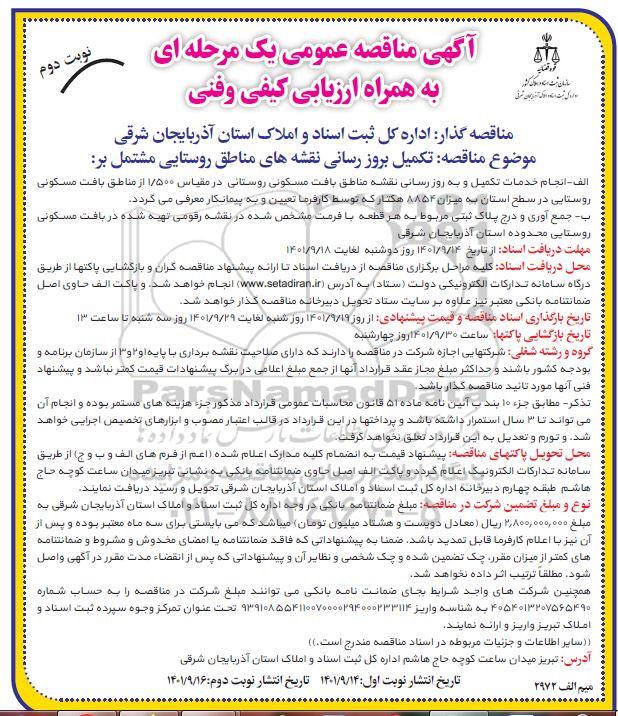 نوبت دوم
قوه قضاییه
سازمان ثبت اسناد و املاک کشور
اداره کل ثبت اسناد و املاک آذربایجان شرقی
آگهی مناقصه عمومی یک مرحله ای
به همراه ارزیابی کیفی وفنی
مناقصه گذار: اداره کل ثبت اسناد و املاک استان آذربایجان شرقی
موضوع مناقصه: تکمیل بروز رسانی نقشه های مناطق روستایی مشتمل بر:
الف-انجام خدمات تکمیل و به روز رسانی نقشه مناطق بافت مسکونی روستانی در مقیاس ۱/۵۰۰ از مناطق بافت مسکونی
روستایی در سطح استان به میزان ۸۸۵۴ هکتار که توسط کارفرما تعیین و به پیمانکار معرفی می گردد.
ب- جمع آوری و درج پلاک ثبتی مربوط به هر قطعه با فرمت مشخص شده در نقشه رقومی تهیه شده در بافت مسکونی
روستایی محدوده استان آذربایجان شرقی
مهلت دریافت اسناد: از تاریخ ۱۴۰۱/۹/۱۴ روز دوشنبه لغایت ۱۴۰۱/۹/۱۸
محل دریافت اسناد: کلیه مراحل برگزاری مناقصه از دریافت اسناد تا ارائه پیشنهاد مناقصه گران و بازگشایی پاکتها از طریق
درگاه سامانه تدارکات الکترونیکی دولت (ستاد) به آدرس (www.setadiran.ir) انجام خواهد شد. و پاکت الف حاوی اصل
ضمانتنامه بانکی معتبر نیز علاوه بر سایت ستاد تحویل دبیرخانه مناقصه گذار خواهد شد.
تاریخ بارگذاری اسناد مناقصه و قیمت پیشنهادی: از روز ۱۴۰۱/۹/۱۹ روز شنبه لغایت ۱۴۰۱/۹/۲۹ روز سه شنبه تا ساعت ۱۳
تاریخ بازگشایی پاکتها: ساعت ۱۴۰۱/۹/۳۰روز چهارشنبه
گروه و رشته شغلی: شرکتهایی اجازه شرکت در مناقصه را دارند که دارای صلاحیت نقشه برداری با پایه ۱و۲و۳ از سازمان برنامه و
بودجه کشور باشند و حداکثر مبلغ مجاز عقد قرارداد آنها از جمع مبلغ اعلامی در برگ پیشنهادات قیمت کمتر نباشد و پیشنهاد
فنی آنها مورد تائید مناقصه گذار باشد.
تذکر- مطابق جزء ۱۰ بند ب آئین نامه ماده ۵۱ قانون محاسبات عمومی قرارداد مذکور جزء هزینه های مستمر بوده و انجام آن
می تواند تا ۳ سال استمرار داشته باشد و پرداختها در این قرارداد در قالب اعتبار مصوب و ابزارهای تخصیص اجرایی خواهد
شد. و تورم و تعدیل به این قرارداد تعلق نخواهد گرفت.
محل تحویل پاکتهای مناقصه: پیشنهاد قیمت به انضمام کلیه مدارک اعلام شده (اعم از فرم های الف و ب و ج) از طریق
سامانه تدارکات الکترونیک اعلام گردد و پاکت الف اصل حاوی ضمانتنامه بانکی به نشانی تبریز میدان ساعت کوچه حاج
هاشم طبقه چهارم دبیرخانه اداره کل ثبت اسناد و املاک استان آذربایجان شرقی تحویل و رسید دریافت نمایند.
نوع و مبلغ تضمین شرکت در مناقصه: مبلغ ضمانتنامه بانکی در وجه اداره کل ثبت اسناد و املاک استان آذربایجان شرقی به
مبلغ ۲,۸۰۰,۰۰۰,۰۰۰ ریال (معادل دویست و هشتاد میلیون تومان) میباشد که می بایستی برای سه ماه معتبر بوده و پس از
آن نیز با اعلام کارفرما قابل تمدید باشد. ضمنا به پیشنهاداتی که فاقد ضمانتنامه یا امضای مخدوش و مشروط و ضمانتنامه
های کمتر از میزان مقرر، چک تضمین شده و چک شخصی و نظایر آن و پیشنهاداتی که پس از انقضاء مدت مقرر در آگهی واصل
شود. مطلقاً ترتیب اثر داده نخواهد شد.
همچنین شرکت های واجد شرایط بجای ضمانت نامه بانکی می توانند مبلغ شرکت در مناقصه را به حساب شماره
۴۰۵۴۰۱۳۲۰۷۵۶۵۴۹۰ به شناسه واریز ۹۳۹۱۰۸۵۵۴۱۱۰۰۷۰۰۰۰۲۹۴۰۰۰۲۳۳۱۱۴ تحت عنوان تمرکز وجوه سپرده ثبت اسناد و
املاک تبریز واریز و ارائه نمایند.
((سایر اطلاعات و جزئیات مربوطه در اسناد مناقصه مندرج است.))
آدرس: تبریز میدان ساعت کوچه حاج هاشم اداره کل ثبت اسناد و املاک استان آذربایجان شرقی
تاریخ انتشار نوبت اول: ۱۴۰۱/۹/۱۴ تاریخ انتشار نوبت دوم: ۱۴۰۱/۹/۱۶
میم الف ۲۹۷۲